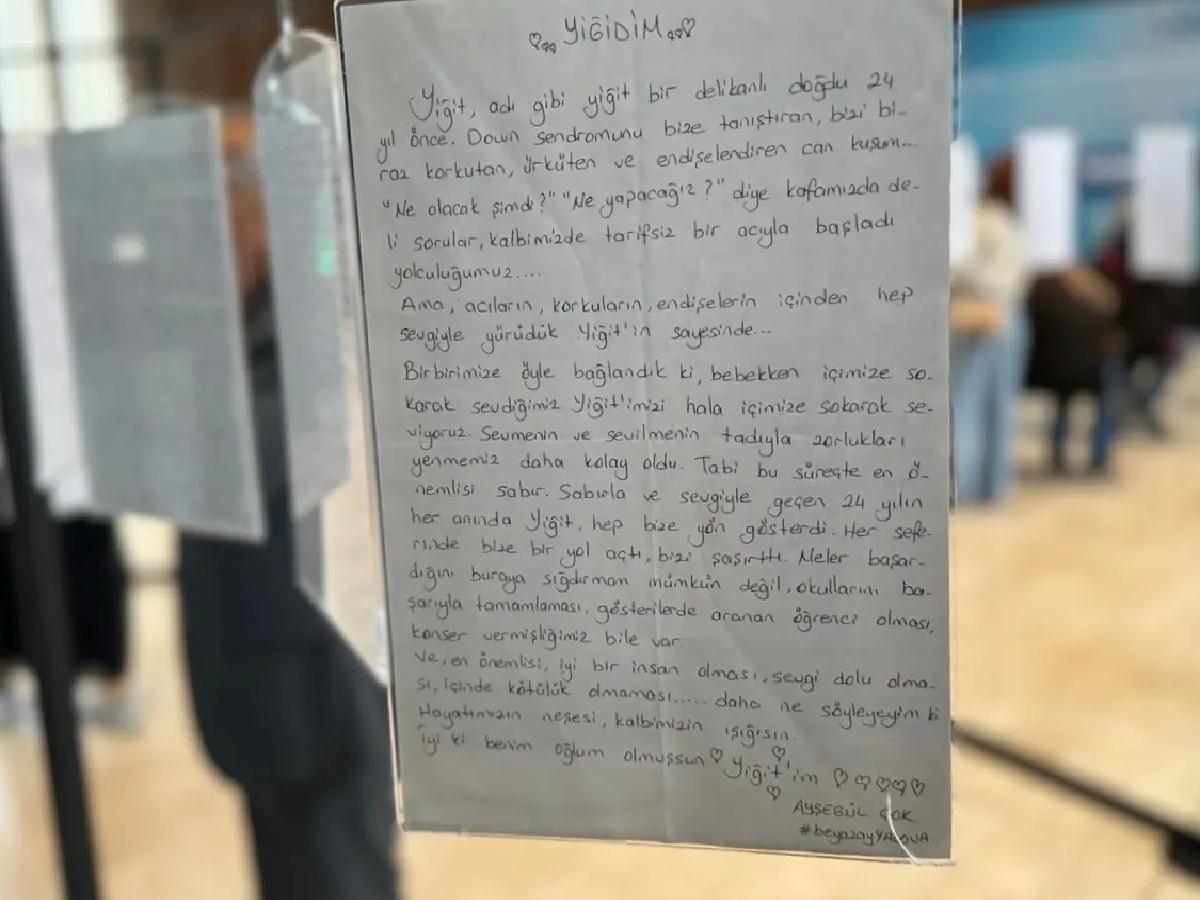 ♡ YİĞİDİM ♡
Yiğit, adı gibi yiğit bir delikanlı doğdu 24
yıl önce. Down sendromunu bize tanıştıran, bizi bi-
raz korkutan, ürküten ve endişelendiren can kuşum...
"Ne olacak şimdi?" "Ne yapacağız?" diye kafamızda de-
li sorular, kalbimizde tarifsiz bir acıyla başladı
yolculuğumuz....
Ama, acıların, korkuların, endişelerin içinden hep
sevgiyle yürüdük Yiğit'in sayesinde...
Birbirimize öyle bağlandık ki, bebekken içimize so-
karak sevdiğimiz Yiğit'imizi hala içimize sokarak se-
viyoruz. Sevmenin ve sevilmenin tadıyla zorlukları
yenmemiz daha kolay oldu. Tabi bu süreçte en ö-
nemlisi sabır. Sabırla ve sevgiyle geçen 24 yılın
her anında Yiğit, hep bize yön gösterdi. Her sefe-
rinde bize bir yol açtı, bizi şaşırttı. Neler başar-
dığını buraya sığdırmam mümkün değil, okullarını ba-
şarıyla tamamlaması, gösterilerde aranan öğrenci olması,
konser vermişliğimiz bile var.
Ve, en önemlisi, iyi bir insan olması, sevgi dolu olma-
sı, içinde kötülük olmaması..... daha ne söyleyeyim ki
Hayatımızın neşesi, kalbimizin ışığısın.
İyi ki benim oğlum olmuşsun ♡ Yiğit'im ♡♡♡♡♡
AYŞEGÜL ÇOK
#beyazayYALOVA